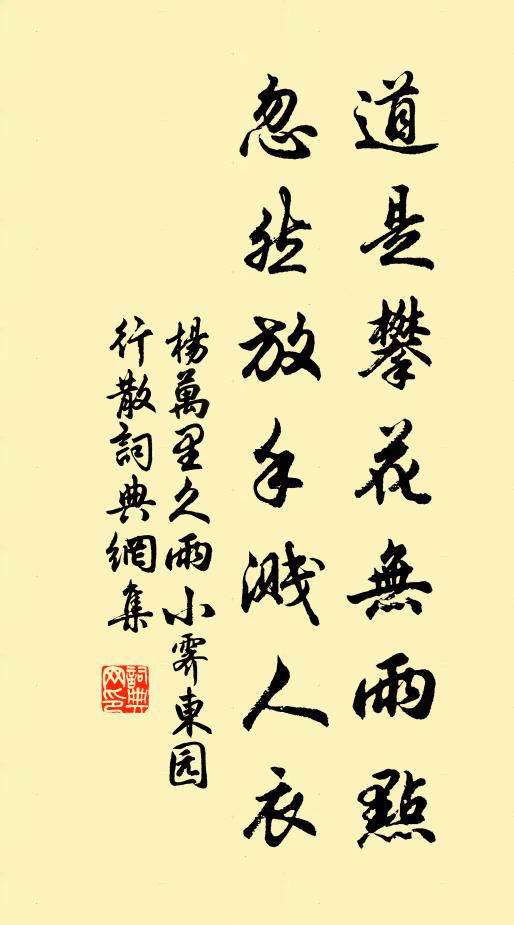 道是攀花無雨點
忽然放手濺人衣
楊萬里久雨小霽東园
行散詞典網集
詞典網印